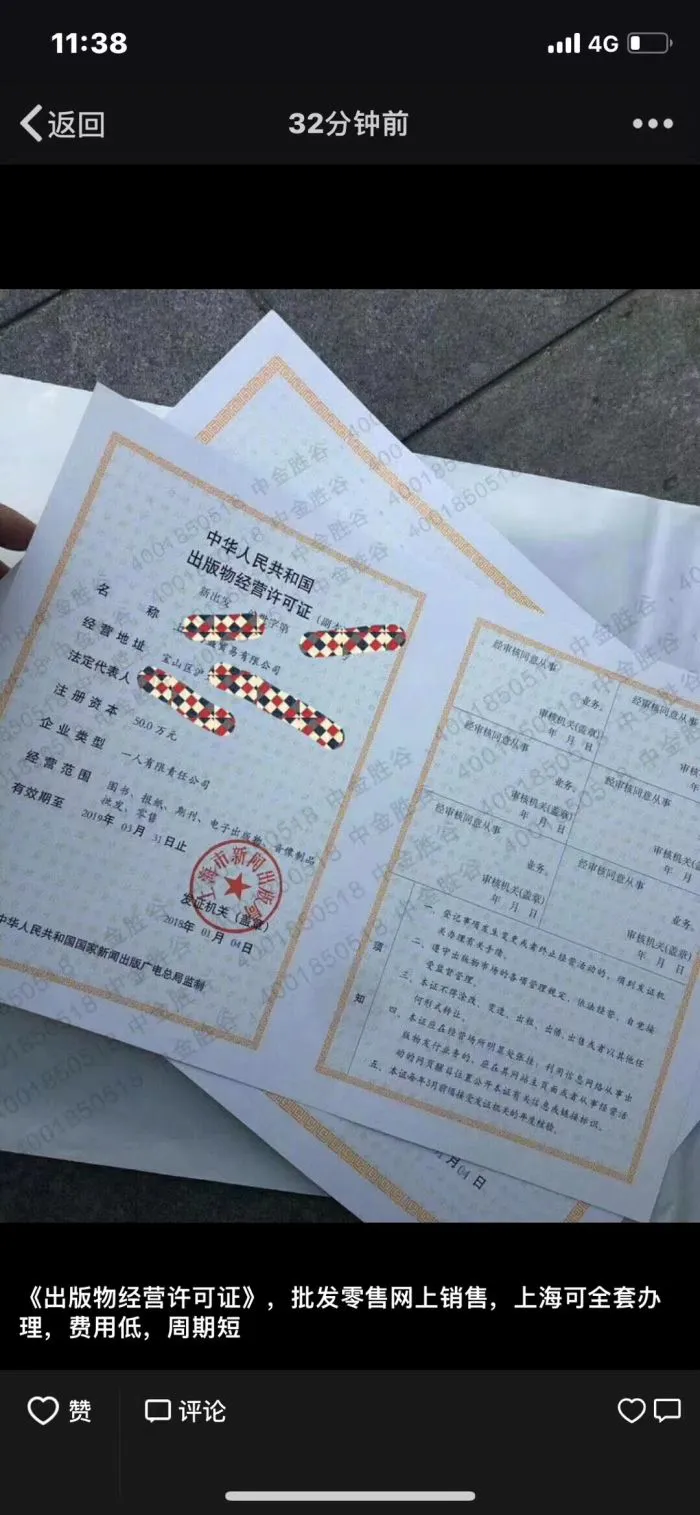 11:38
4G
返回
32分钟前
中华人民共和国
出版物经营许可证(副本)
新出发
字第
名 称
贸易有限公司
经营地址
宝山区沪
法定代表人
注册资本
50.0 万元
企业类型
一人有限责任公司
经营范围
图书、报纸、期刊、电子出版物、音像制品
批发、零售
有效期至
2019年 03月 31日止
上海市新闻出版局
发证机关(盖章)
2018年 01月 04日
中华人民共和国国家新闻出版广电总局监制
经审核同意从事
业务。
审核机关(盖章)
年 月 日
经审核同意从事
审核
经审核同意从事
业务。
审核机关(盖章)
年 月 日
经审核同意从事
业务。
审核机关(盖
年 月
经审核同意从事
业务。
审核机关(盖章)
年 月 日
经审核同意从事
业务。
审核机关(盖章)
年 月 日
须
知
一、登记事项发生变更或者终止经营活动的，须到发证机
关办理有关手续。
二、遵守出版物市场的各项管理规定，依法经营，自觉接
受监督管理。
三、本证不得涂改、变造、出租、出借、出售或者以其他任
何形式转让。
四、本证应在经营场所明显处张挂；利用信息网络从事出
版物发行业务的，应在其网站主页面或者从事经营活
动的网页醒目位置公开本证有关信息或链接标识。
五、本证每年3月前须接受发证机关的年度核验。
月 04 日
4001850518 中金胜谷
《出版物经营许可证》，批发零售网上销售，上海可全套办
理，费用低，周期短
赞
评论